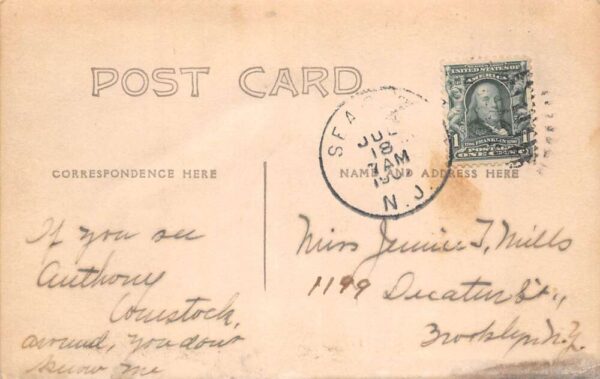 POST CARD
UNITED STATES OF
AMERICA
1 FRANKLIN 1
POSTAGE
ONE CENT
SEA
JUL
18
7 AM
190
N.J.
CORRESPONDENCE HERE
NAME AND ADDRESS HERE
If you see
Anthony
Comstock,
around, you dont
know me
Miss Jennie T. Mills
1199 Decatur St.,
Brooklyn N.Y.